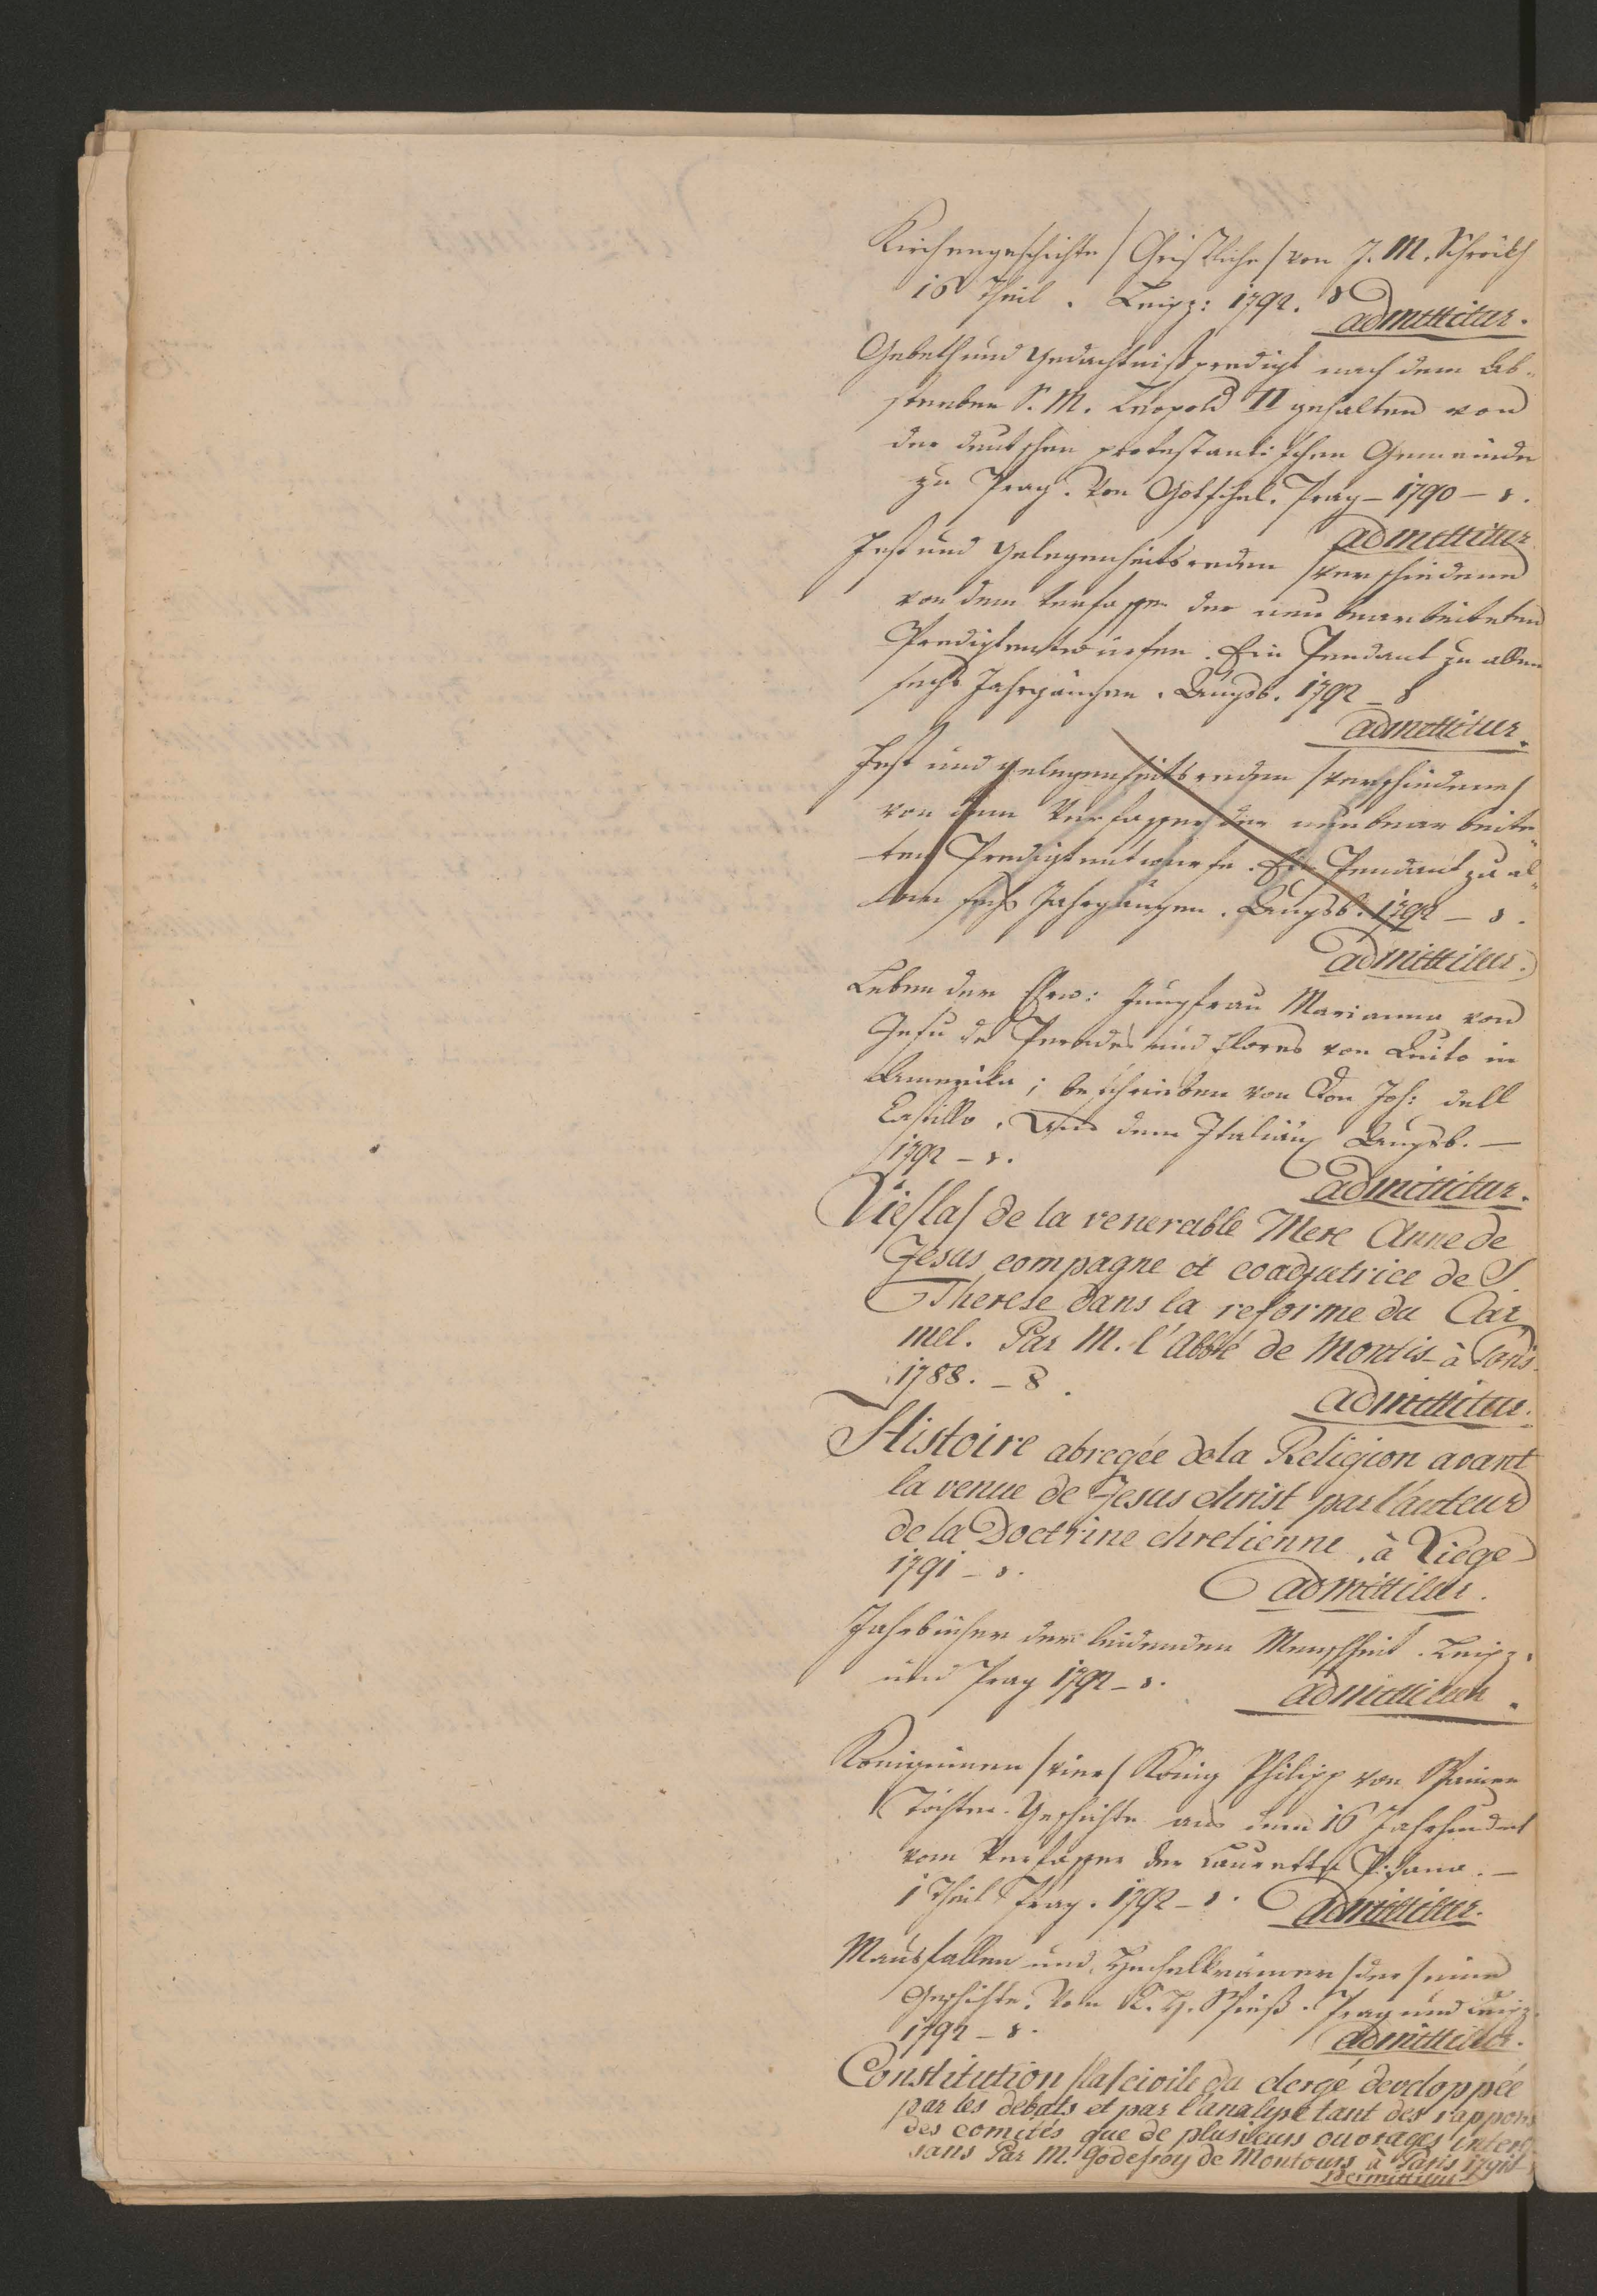 Kirchengeschichte / Christliche / von J. M. Schröckh
16 Theil. Leipz: 1792. 8
admittitur.
Gebeth und Gedächtnißpredigt nach dem Ab-
sterben S. M. Leopold II gehalten von
der deutschen protestantischen Gemeinde
zu Prag. Von Götschel. Prag - 1790 - 8.
admittitur
Fest und Gelegenheitsreden / verschiedene
von dem Verfasser der neu bearbeiteten
Predigtentwürfen. Ein Pendant zu allen
sechs Jahrgängen. Augsb. 1792 _ 8
admittitur.
Fest und Gelegenheitsreden / verschiedene /
von dem Verfasser der neubearbeite-
ten Predigtentwürfe. Ein Pendant zu al-
len sechs Jahrgängen. Augsb. 1792 _ 8.
admittitur.
Leben der Ehrw: Jungfrau Marianna von
Jesu de Paredes und Flores von Quito in
Amerika; beschrieben von Don Joh: dell
Castillo. Aus dem Italiän: Augsb. —
1792 - 8.
admittitur.
Vie / la / de la venerable Mere Anne de
Jesus compagne et coadjutrice de S
Therese dans la reforme du Car
mel. Par M. l'Abbé de Montis - à Paris
1788. - 8.
admittitur.
Histoire abregée de la Religion avant
la venue de Jesus christ par l'auteur
de la Doctrine chretienne, à Liege
1791 - 8.
admittitur.
Jahrbücher der leidenden Menschheit. Leipz.
und Prag 1792 - 8.
admittitur.
Königinnen / vier / König Philipp von Spanien
Töchter. Geschichte aus dem 16 Jahrhundert
vom Verfasser der Lauretta Pisana. —
1 Theil Prag. 1792 - 8.
admittitur.
Mausfallen und Hechelkrämer / der / eine
Geschichte. Von K. H. Spieß. Prag und Leipz.
1792 - 8.
admittitur.
Constitution / la / civile du clergé developpée
par les debats et par l'analyse tant des rapports
des comités que de plusieurs ouvrages interes
sans Par M. Godefroy de Montours à Paris 1791
permittitur